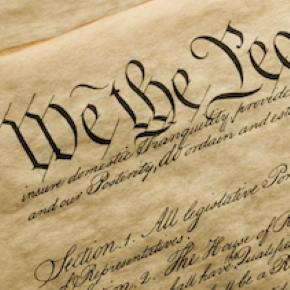 We the Peo
insure domestic Tranquility, provide
and our Posterity, do ordain and est
Section. 1. All legislative Po
of Representatives.
Section. 2. The House of R
shall have Qualifi
shall be a R